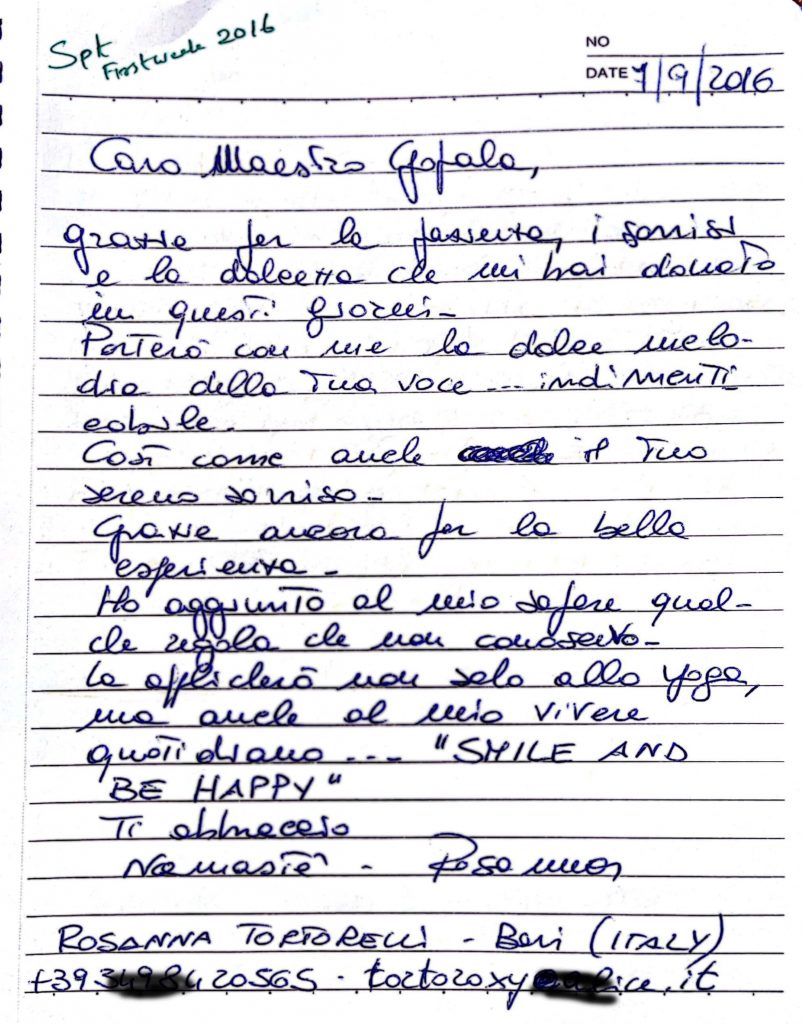 Spt
First week 2016
NO
DATE 7/9/2016
Caro Maestro Gopala,
grazie per la pazienza, i sorrisi
e la dolcezza che mi hai donato
in questi giorni-
Porterò con me la dolce melo-
dia della tua voce --- indimenti
cabile.
Così come anche il tuo
sereno sorriso-
Grazie ancora per la bella
esperienza-
Ho aggiunto al mio sapere qual-
che regola che non conoscevo-
Le applicherò non solo allo yoga,
ma anche al mio vivere
quotidiano --- "SMILE AND
BE HAPPY"
Ti abbraccio
Namastè - Rosanna
ROSANNA TORTORELLI - Bari (ITALY)